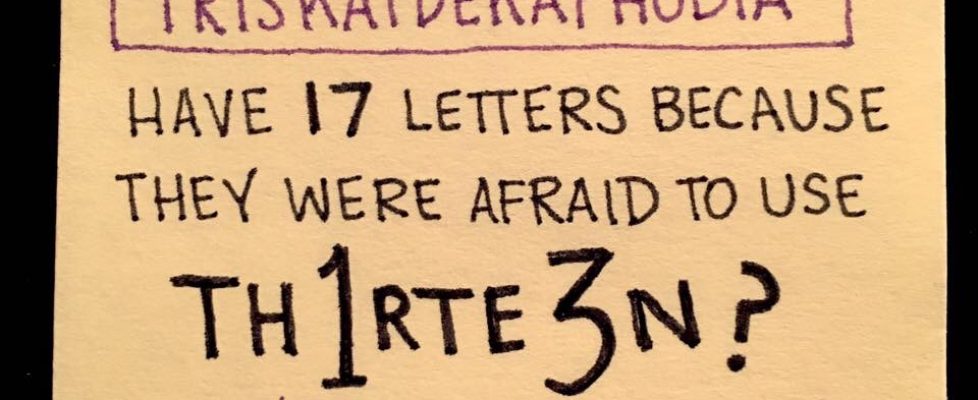 TRISKAIDEKAPHOBIA
HAVE 17 LETTERS BECAUSE
THEY WERE AFRAID TO USE
TH1RTE3N?